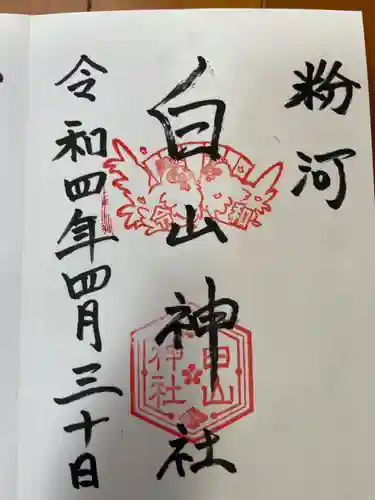 粉河
白山神社
令和四年四月三十日
令和
白山
神社